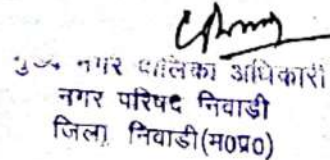 मुख्य नगर पालिका अधिकारी
नगर परिषद निवाडी
जिला निवाडी (म०प्र०)